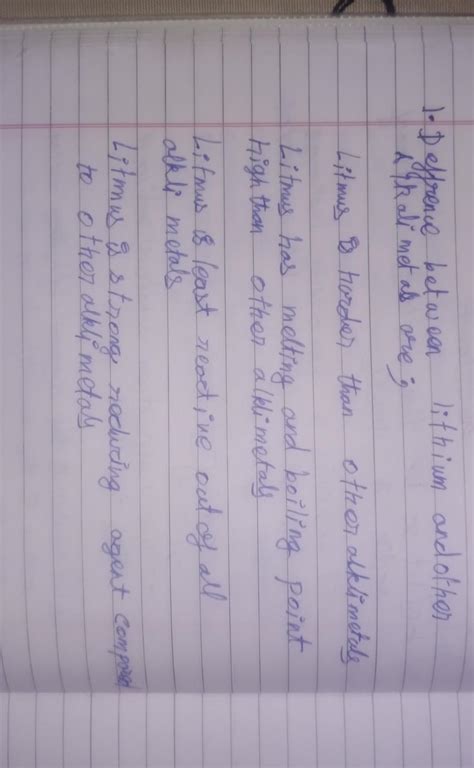 1. Deffrence between lithium and other
alkali metals are;
Litmus is harder than other alklimetals
Litmus has melting and boiling point
high than other alklimetals
Litmus is least reactive out of all
alkli metals
Litmus is strong reducing agent compared
to other alkli metals